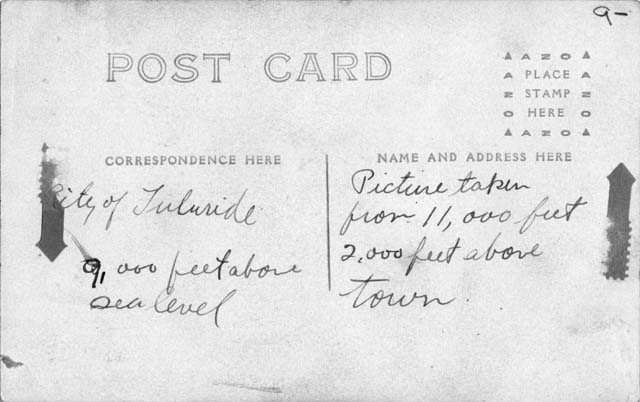 9-
POST CARD
AZO
PLACE
STAMP
HERE
AZO
CORRESPONDENCE HERE
NAME AND ADDRESS HERE
City of Tuluride
9,000 feet above
sea level
Picture taken
from 11,000 feet
2,000 feet above
town.